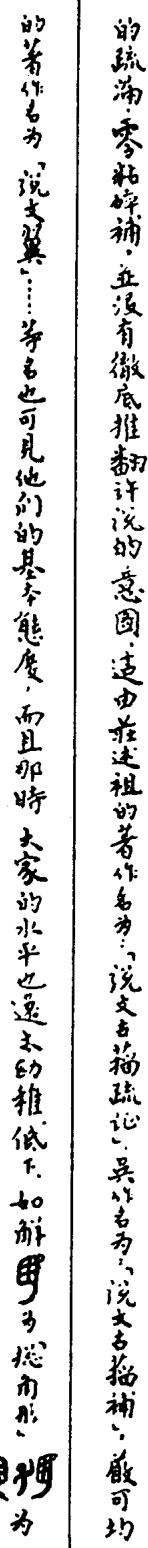 的疏漏，零粘碎補，並没有徹底推翻許説的意图，這由莊述祖的著作名为：「説文古籀疏证」，吴作名为：「説文古籀補」，嚴可均
的著作名为「説文翼」……等名也可見他们的基本態度，而且那時大家的水平也還太幼稚低下，如解 为「 」为